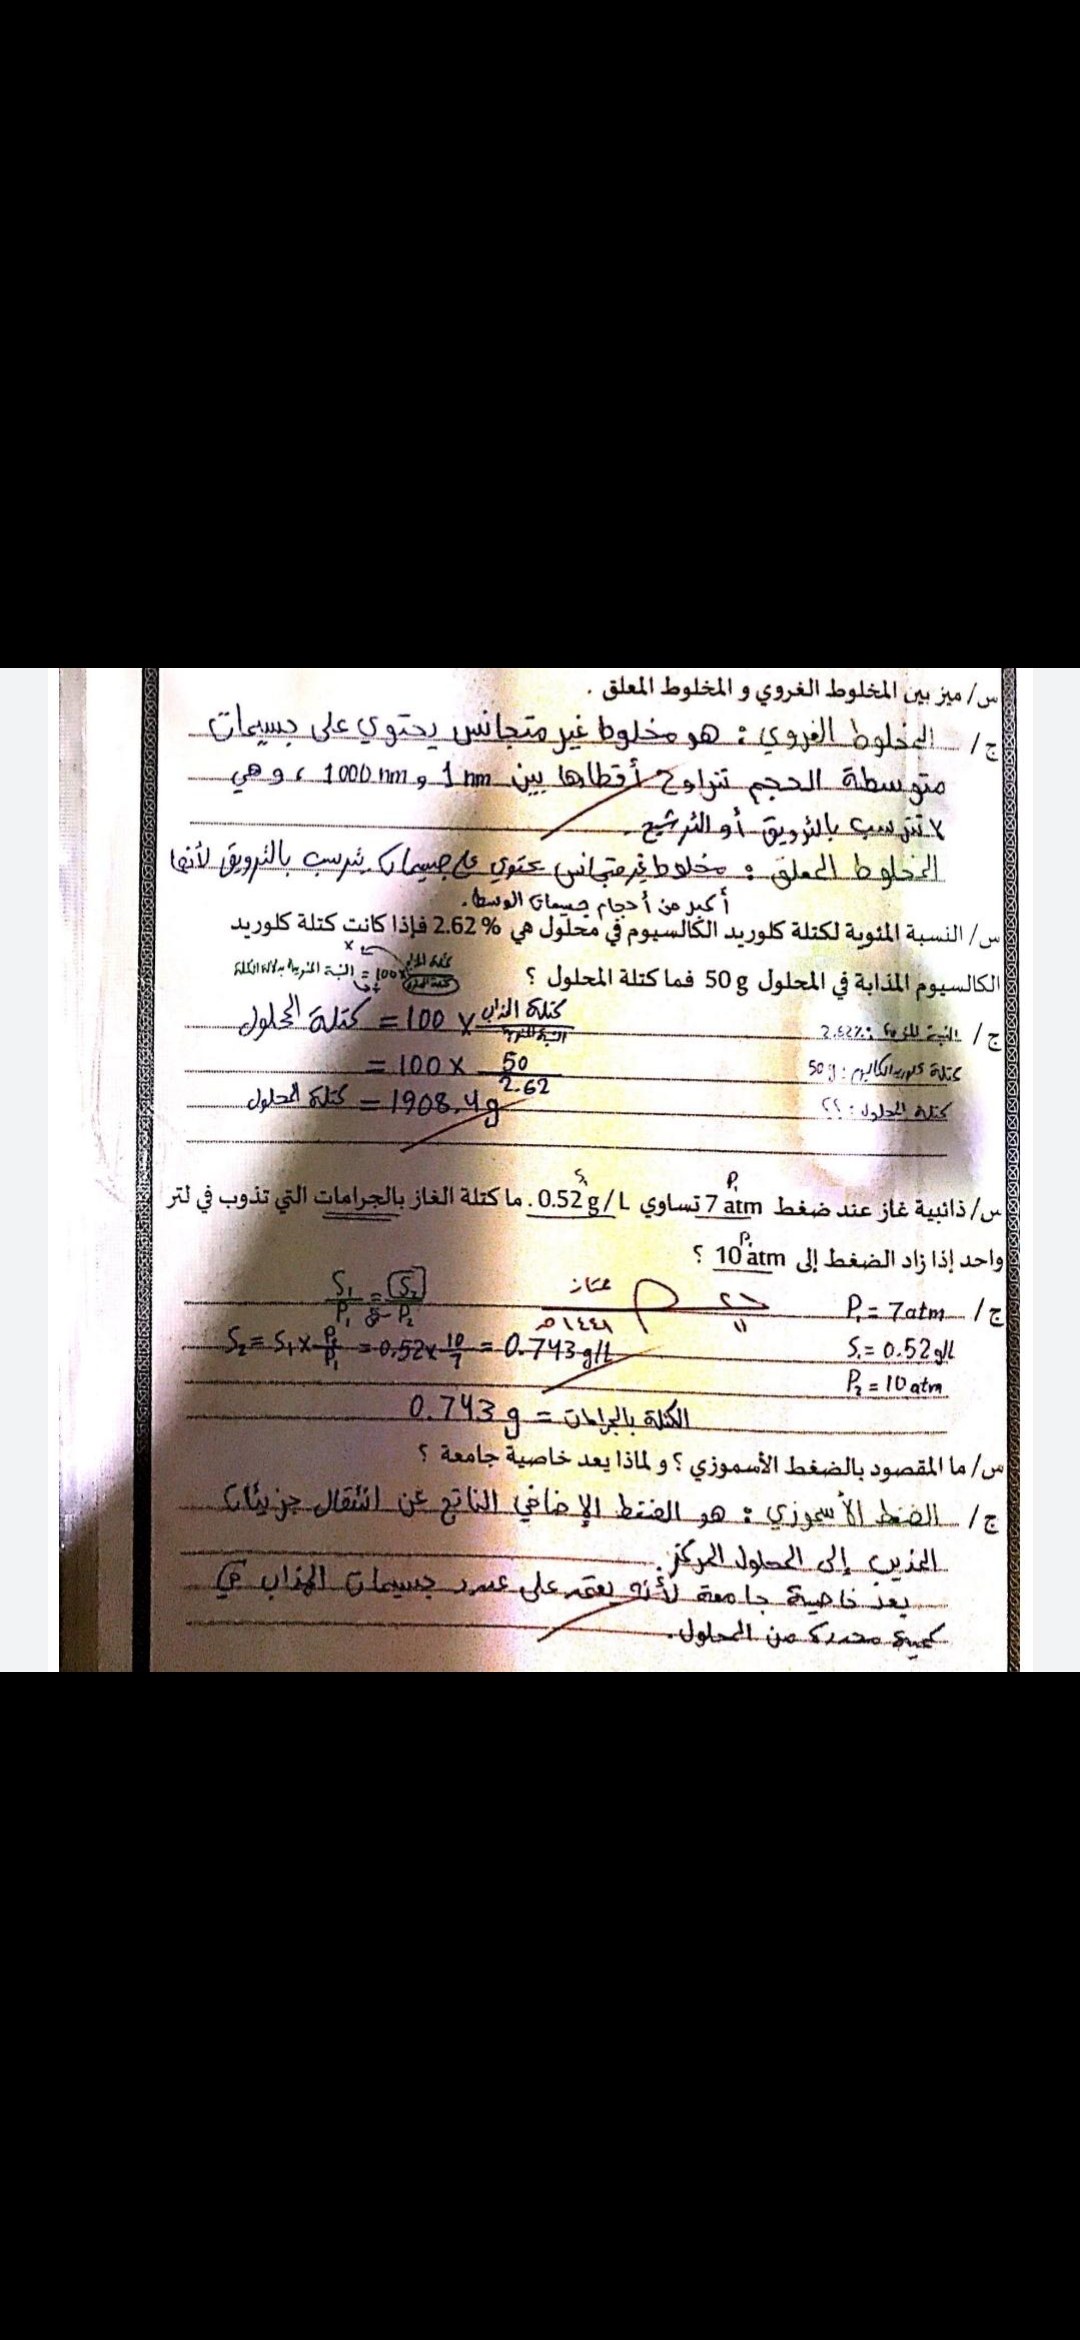 س/ ميز بين المخلوط الغروي و المخلوط المعلق .
ج/ المخلوط الغروي : هو مخلوط غير متجانس يحتوي على جسيمات
متوسطة الحجم تتراوح أقطارها بين 1 nm و 1000 nm ، وهي
لا تترسب بالترويق أو الترشيح .
المخلوط المعلق : مخلوط غير متجانس يحتوي على جسيمات تترسب بالترويق لأنها
أكبر من أحجام جسيمات الوسط .
س/ النسبة المئوية لكتلة كلوريد الكالسيوم في محلول هي % 2.62 فإذا كانت كتلة كلوريد
النسبة المئوية بدلالة الكتلة = 100 × كتلة المذاب
الكالسيوم المذابة في المحلول 50 g فما كتلة المحلول ؟
ج/ النسبة المئوية : 2.62%
كتلة المحلول = 100 × كتلة المذاب / النسبة المئوية
كتلة كلوريد الكالسيوم : 50 g
= 100 × 50 / 2.62
كتلة المحلول : ؟؟
كتلة المحلول = 1908.4 g
S₁ P₁
س/ ذائبية غاز عند ضغط 7 atm تساوي 0.52 g/L . ما كتلة الغاز بالجرامات التي تذوب في لتر
P₂
واحد إذا زاد الضغط إلى 10 atm ؟
ج/ P₁ = 7 atm
ممتاز
١٤٤١ هـ
S₁/P₁ = S₂/P₂
S₁ = 0.52 g/L
S₂ = S₁ × P₂/P₁ = 0.52 × 10/7 = 0.743 g/L
P₂ = 10 atm
الكتلة بالجرامات = 0.743 g
س/ ما المقصود بالضغط الأسموزي ؟ و لماذا يعد خاصية جامعة ؟
ج/ الضغط الأسموزي : هو الضغط الإضافي الناتج عن انتقال جزيئات
المذيب إلى المحلول المركز .
يعد خاصية جامعة لأنه يعتمد على عدد جسيمات المذاب في
كمية محددة من المحلول .